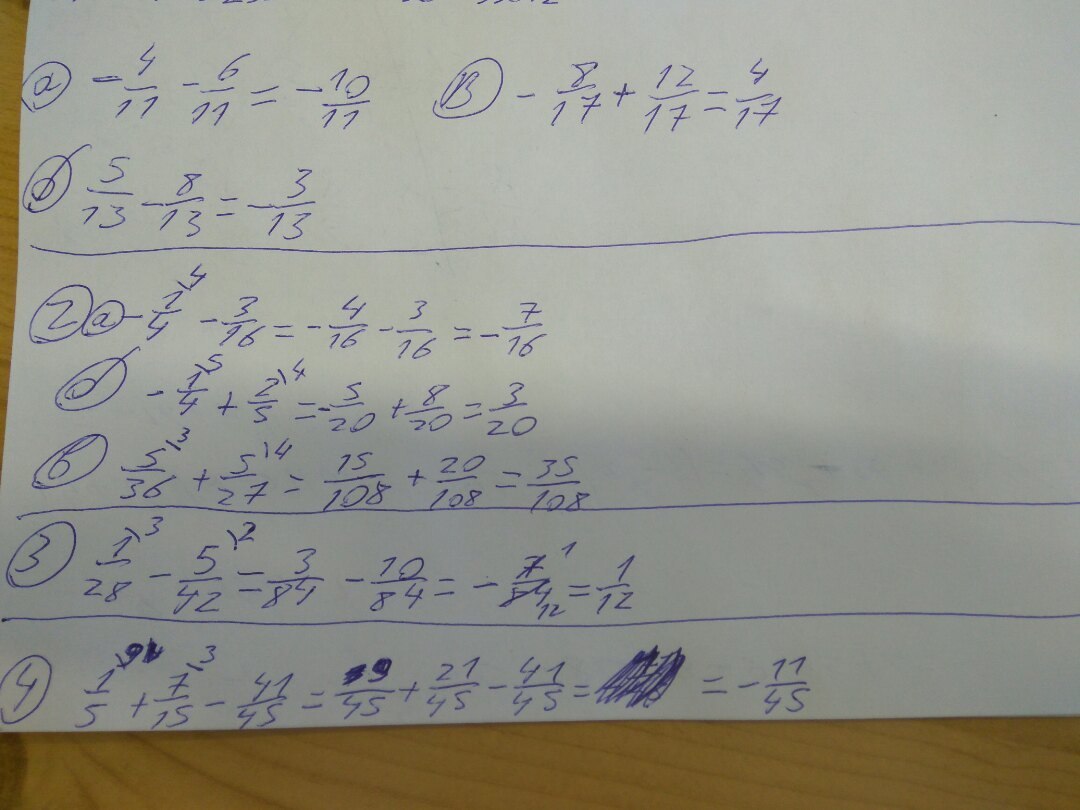 а) -4/11 - 6/11 = -10/11 В) -8/17 + 12/17 = 4/17
б) 5/13 - 8/13 = -3/13
2) а) -1/4\4 - 3/16 = -4/16 - 3/16 = -7/16
б) -1/4\5 + 2/5\4 = -5/20 + 8/20 = 3/20
в) 5/36\3 + 5/27\4 = 15/108 + 20/108 = 35/108
3) 1/28\3 - 5/42\2 = 3/84 - 10/84 = -7 1/84 12 = 1/12
4) 1/5\9 + 7/15\3 - 41/45 = 9/45 + 21/45 - 41/45 = = -11/45